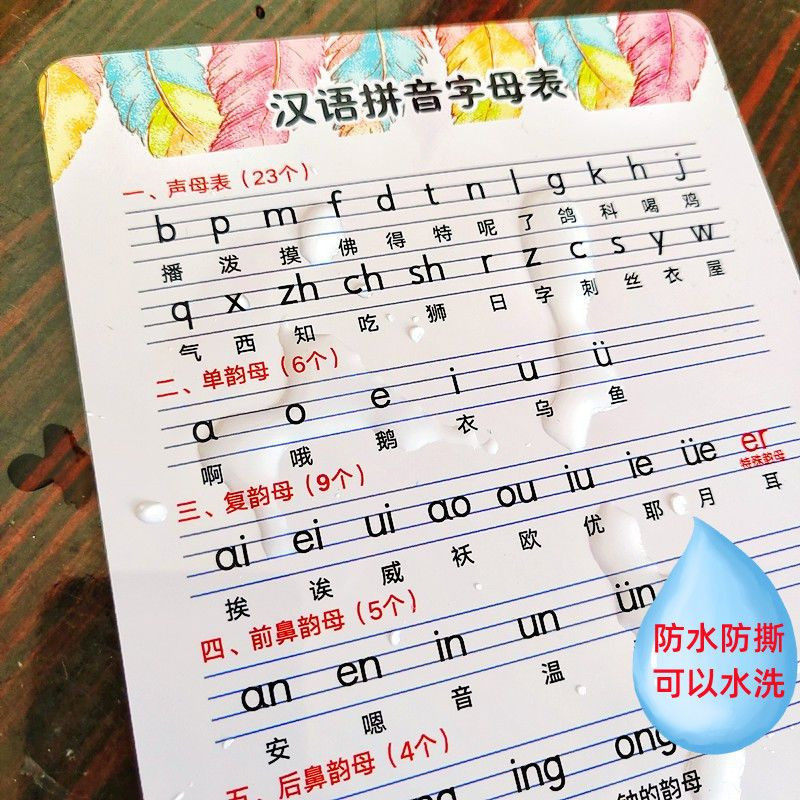 汉语拼音字母表
一、声母表（23个）
b p m f d t n l g k h j
播 泼 摸 佛 得 特 呢 了 鸽 科 喝 鸡
q x zh ch sh r z c s y w
气 西 知 吃 狮 日 字 刺 丝 衣 屋
二、单韵母（6个）
a o e i u ü
啊 哦 鹅 衣 乌 鱼
三、复韵母（9个）
ai ei ui ao ou iu ie üe er
特殊韵母
挨 诶 威 袄 欧 优 耶 月 耳
四、前鼻韵母（5个）
an en in un ün
安 嗯 音 温
五、后鼻韵母（4个）
ing ong
的韵母
防水防撕
可以水洗